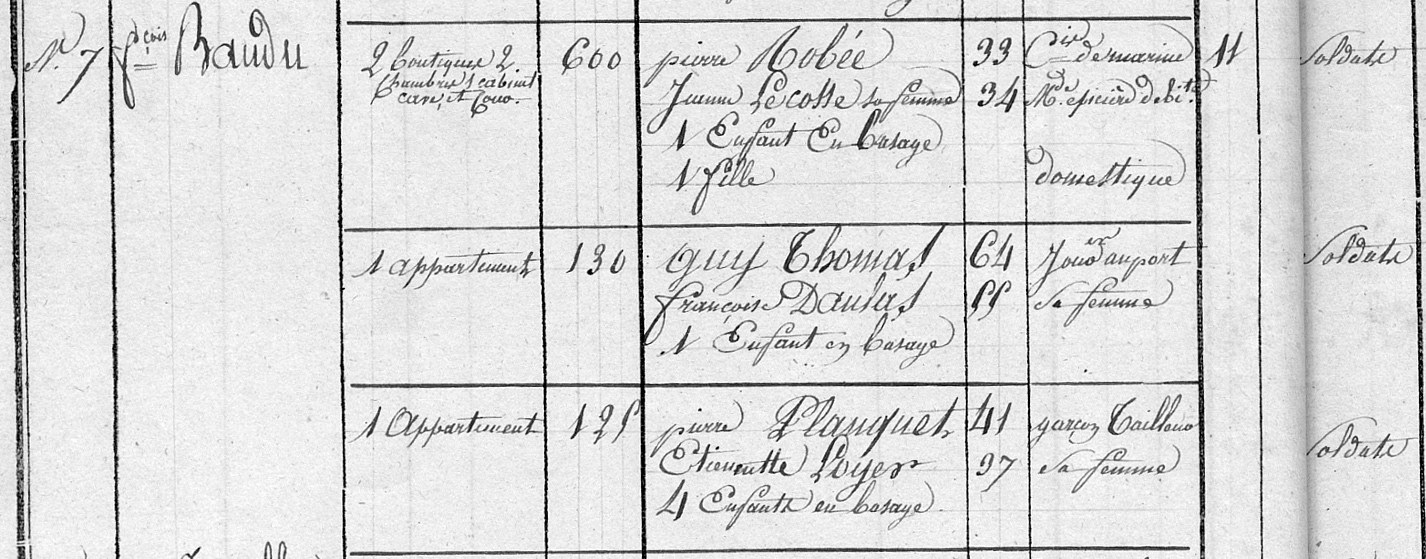 N° 7 fçois Baudu
2 boutiques 2.
Chambres 1 cabinet
cave, et Cour.
600
pierre Robée 33 Cier de marine 11 Soldats
Jeanne Lecosse sa femme 34 Mde epicière debite
1 Enfant En basage
1 fille domestique
1 appartement 130 Guy Thomas 64 Jouer au port Soldats
françoise Daulas 55 Sa femme
1 Enfant en basage
1 Appartement 125 pierre Planquet 41 garçon Tailleur Soldats
Etiennette Loyer 37 Sa femme
4 Enfants en basage